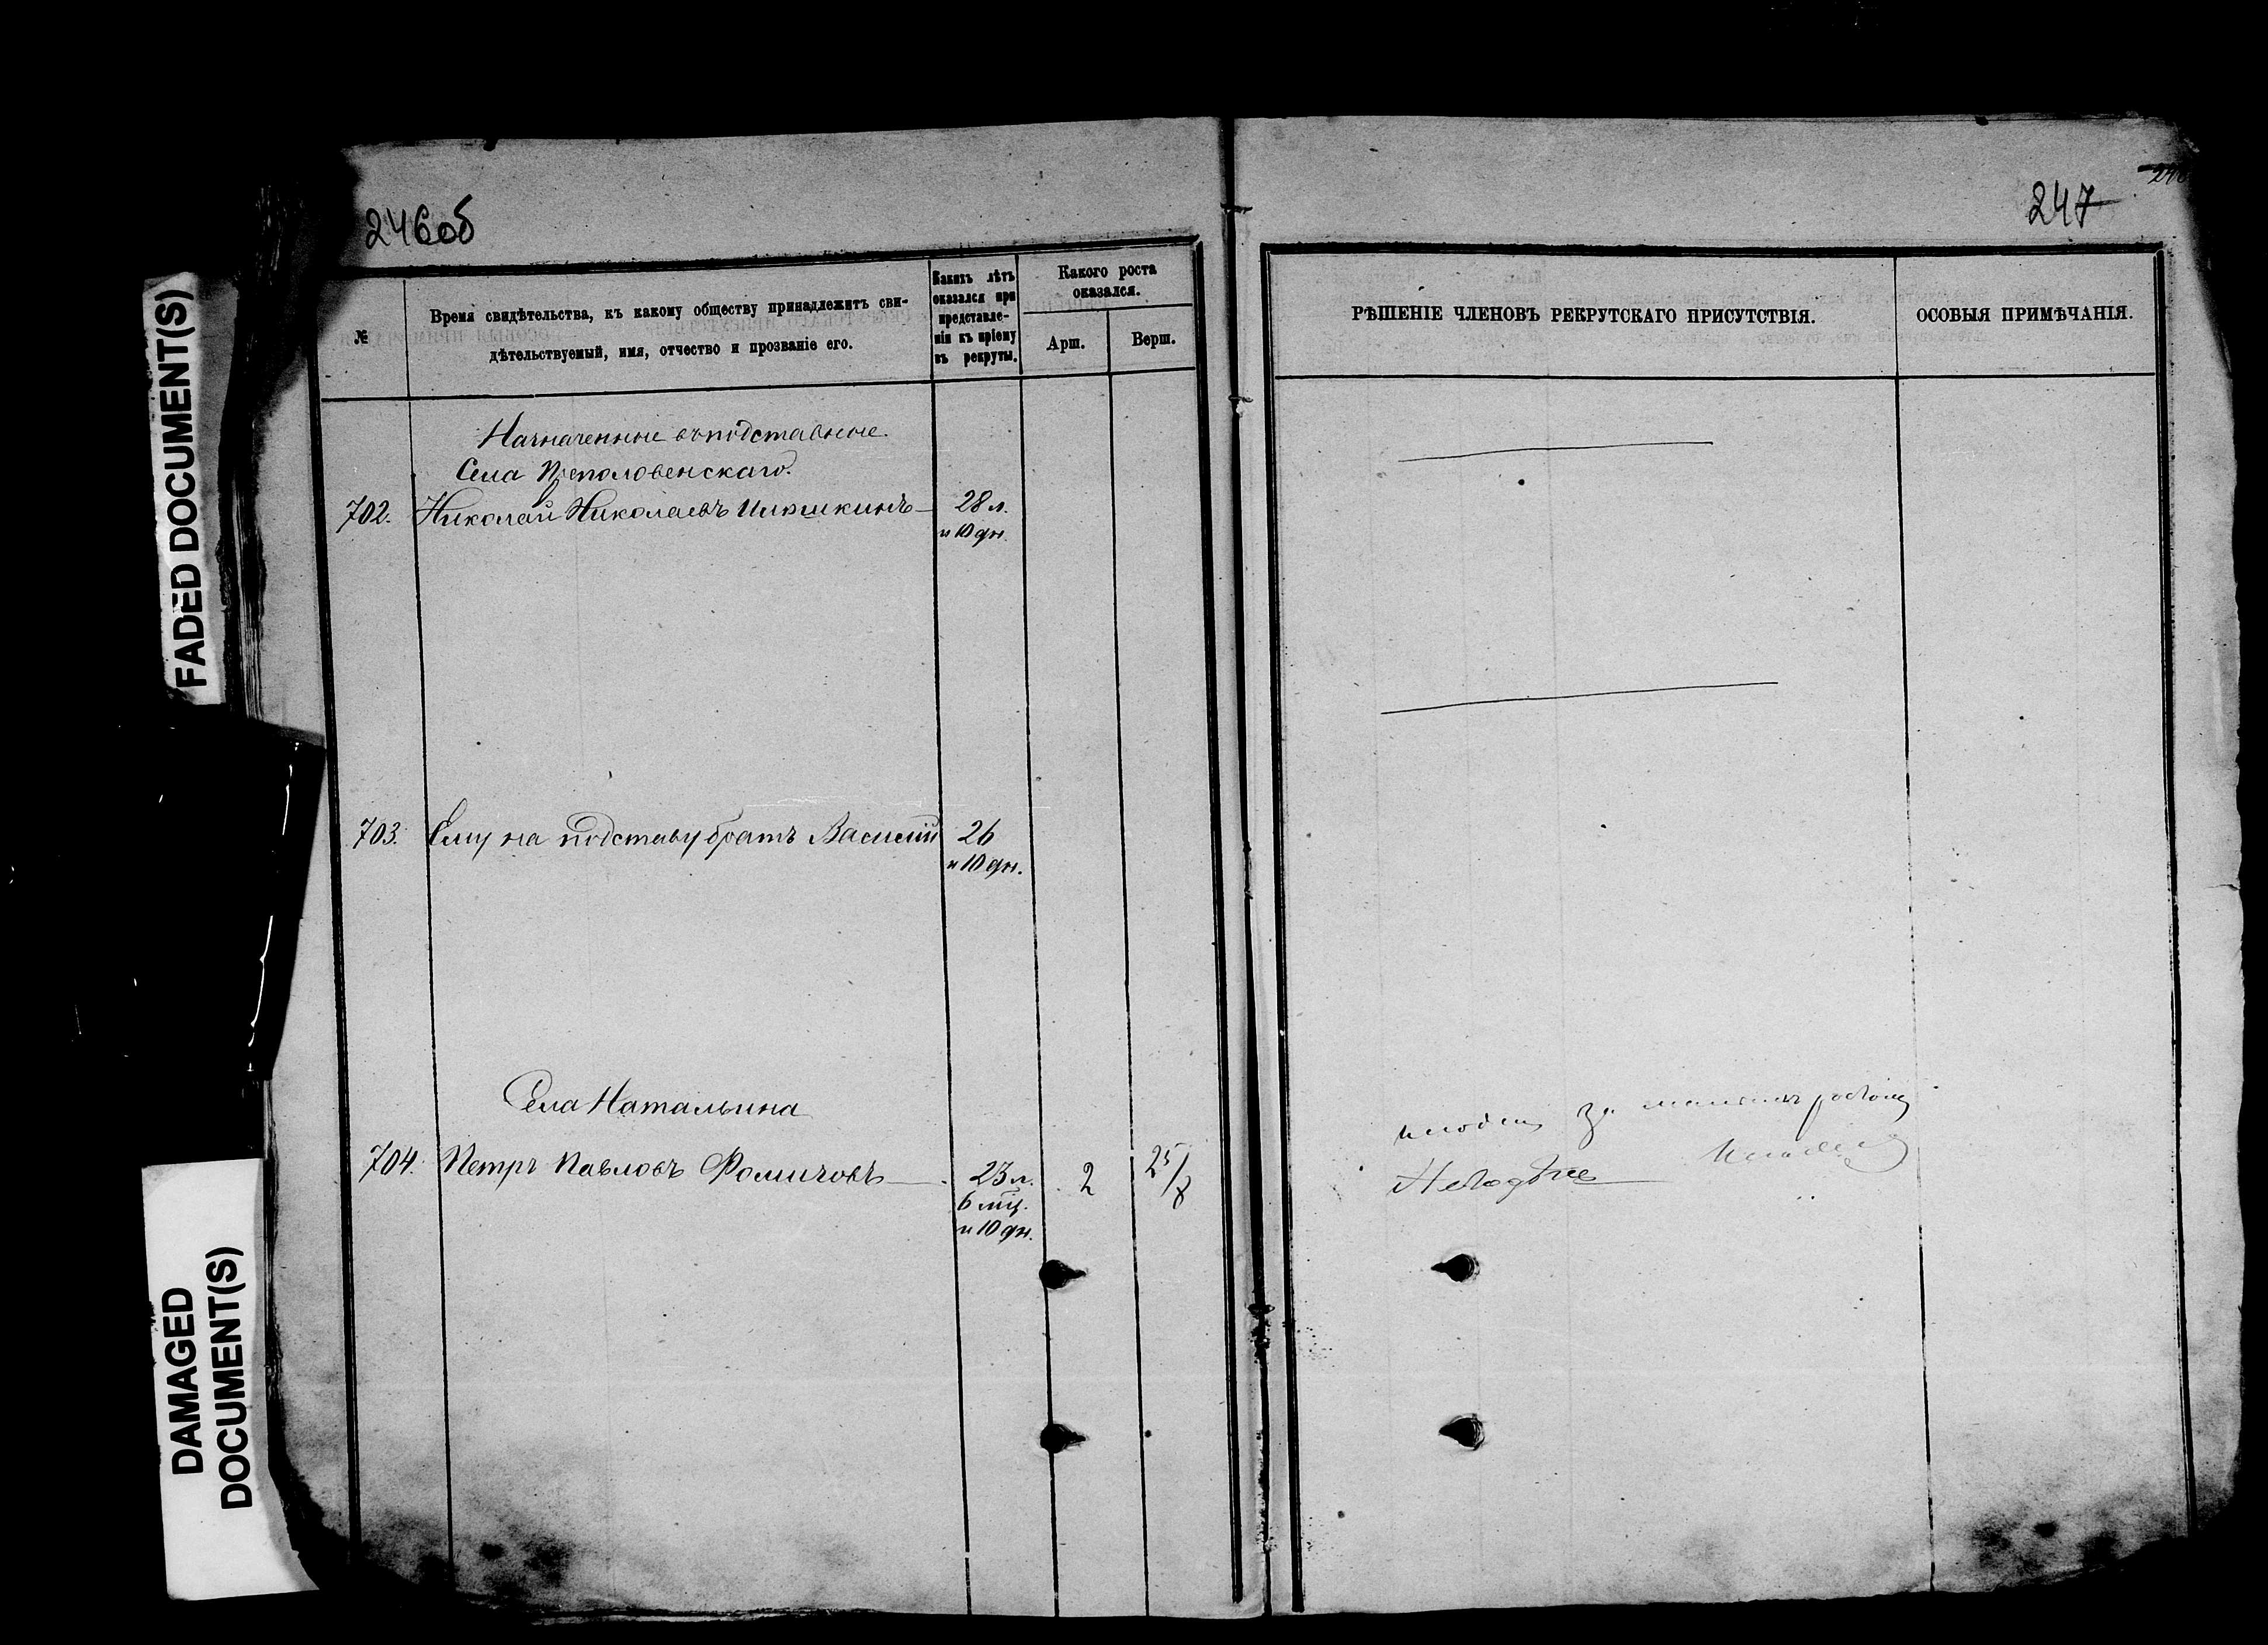 FADED DOCUMENT(S)
DAMAGED
DOCUMENT(S)
246об
№
Время свидѣтельства, къ какому обществу принадлежитъ сви-
дѣтельствуемый, имя, отчество и прозваніе его.
Какихъ лѣтъ
оказался при
представле-
ніи къ пріему
въ рекруты.
Какого роста
оказался.
Арш.
Верш.
Назначенные въ подставные
Села Преполовенскаго.
702. Николай Николаевъ Илюшкинъ 28 л.
и 10 дн.
703. Ему на подставу братъ Василій 26
и 10 дн.
Села Натальина
704. Петръ Павловъ Фомичовъ 23 л. 2 2 5/8
6 мц.
и 10 дн.
247
РѢШЕНІЕ ЧЛЕНОВЪ РЕКРУТСКАГО ПРИСУТСТВІЯ.
ОСОБЫЯ ПРИМѢЧАНІЯ.
за малымъ ростомъ
Негоденъ